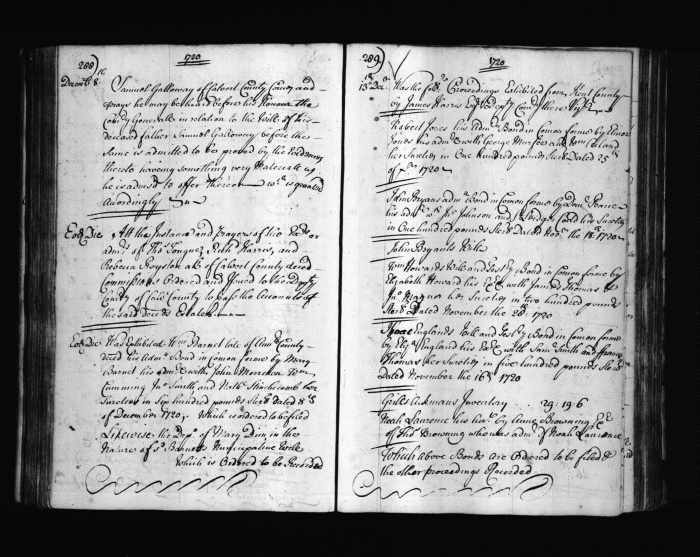 288)
1720
Decemb.r 8.th
Samuel Galloway of Calvert County Comes and
prays he may be heard before his Honour the
Com.ry Generall in relation to the Will of his
deceased father Samuel Galloway before the
same is admitted to be proved by the Evidences
thereto having something very Materiall as
he is advised to offer thereon w.ch is granted
Accordingly
Eod. Die
Att the Instance and prayer of the
adm.rs of Tho.s Tongue, Ruth Harris, and
Rebecca Royston all of Calvert County deced
Commission is Ordered and Issued to the Dep.ty
Com.ry of Calv.t County to pass the Accounts of
the said deceds Estates
Eod. Die
Was Exhibited W.m Barnet late of County
deced his Adm.n Bond in Comon forme by Mary
Barnet his adm.x with John
Cumming Jn.o Smith and Nath.l Stinchicomb her
Sureties in Six hundred pounds Sterl. Dated 8.th
of December 1720. Which is ordered to be filed
Likewise the Dep.s of Mary in the
Nature of S.d Barnets Nuncupative Will
Which is Ordered to be Recorded
289)
1720
13.th Dec.r
Was the foll. Proceedings Exhibited from Kent County
by James Harris Esq.r Dep.ty Com.ry there
Robert Jones his Adm.n Bond in Comon forme by Elinor
Jones his adm.x with George and W.m
her Sureties in One hundred pounds Sterl. Dated 25.th
of 1720
John Bryans adm.n Bond in Comon forme by Dan.l Pearce
his adm.r w.th Johnson and his Sureties
in One hundred pounds Sterl. Dated Nov.r the 18.th 1720
John Bryants Will
W.m Howards Will and Test.ry Bond in Comon forme by
Elizabeth Howard his Ex.x with James Thomas &
her Sureties in two hundred pounds
Sterl. Dated November the 28.th 1720
Isaac Englands Will and Test.ry Bond in Comon forme
by England his Ex.x with Sam. Smith and
Thomas her Sureties in five hundred pounds Sterl.
Dated November the 16.th 1720
Giles Inventory 29. 19. 6
Noah Laurence his by Anne Browning Ex.x
of Tho.s Browning who was adm.r of Noah Laurence
Which above Bonds are Ordered to be filed &
the other proceedings Recorded